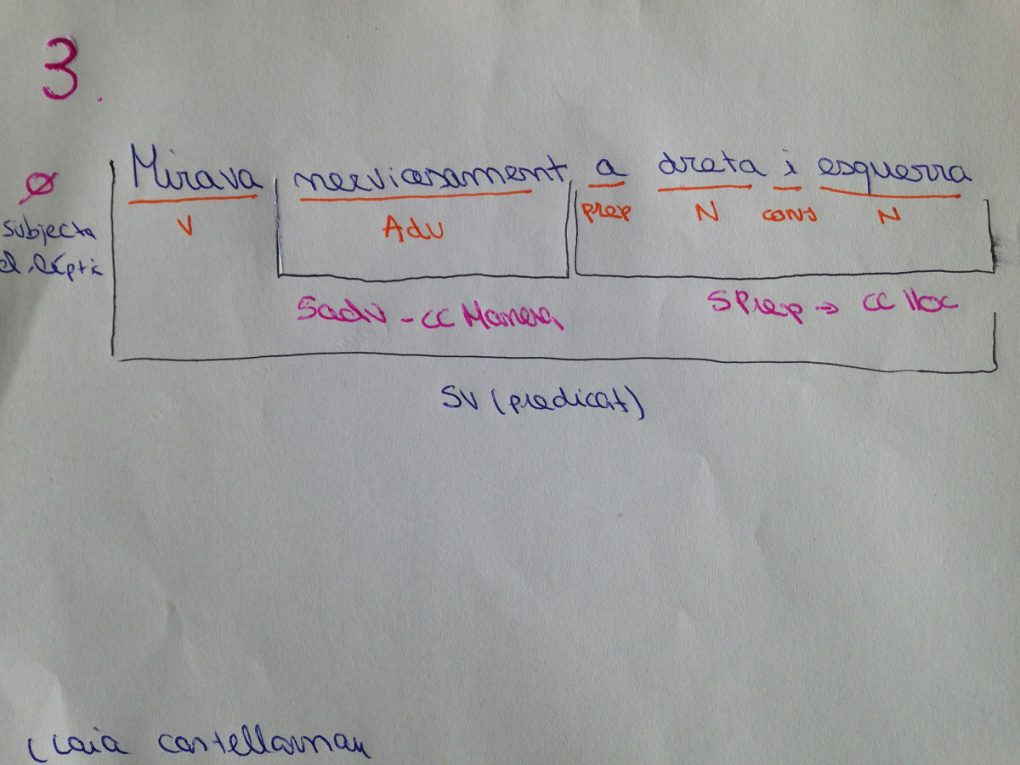 3.
Mirava nerviosament a dreta i esquerra
Ø
V Adv prep N conj N
subjecte
el·líptic
Sadv - CC Manera SPrep → CC lloc
SV (predicat)
Laia Castellarnau